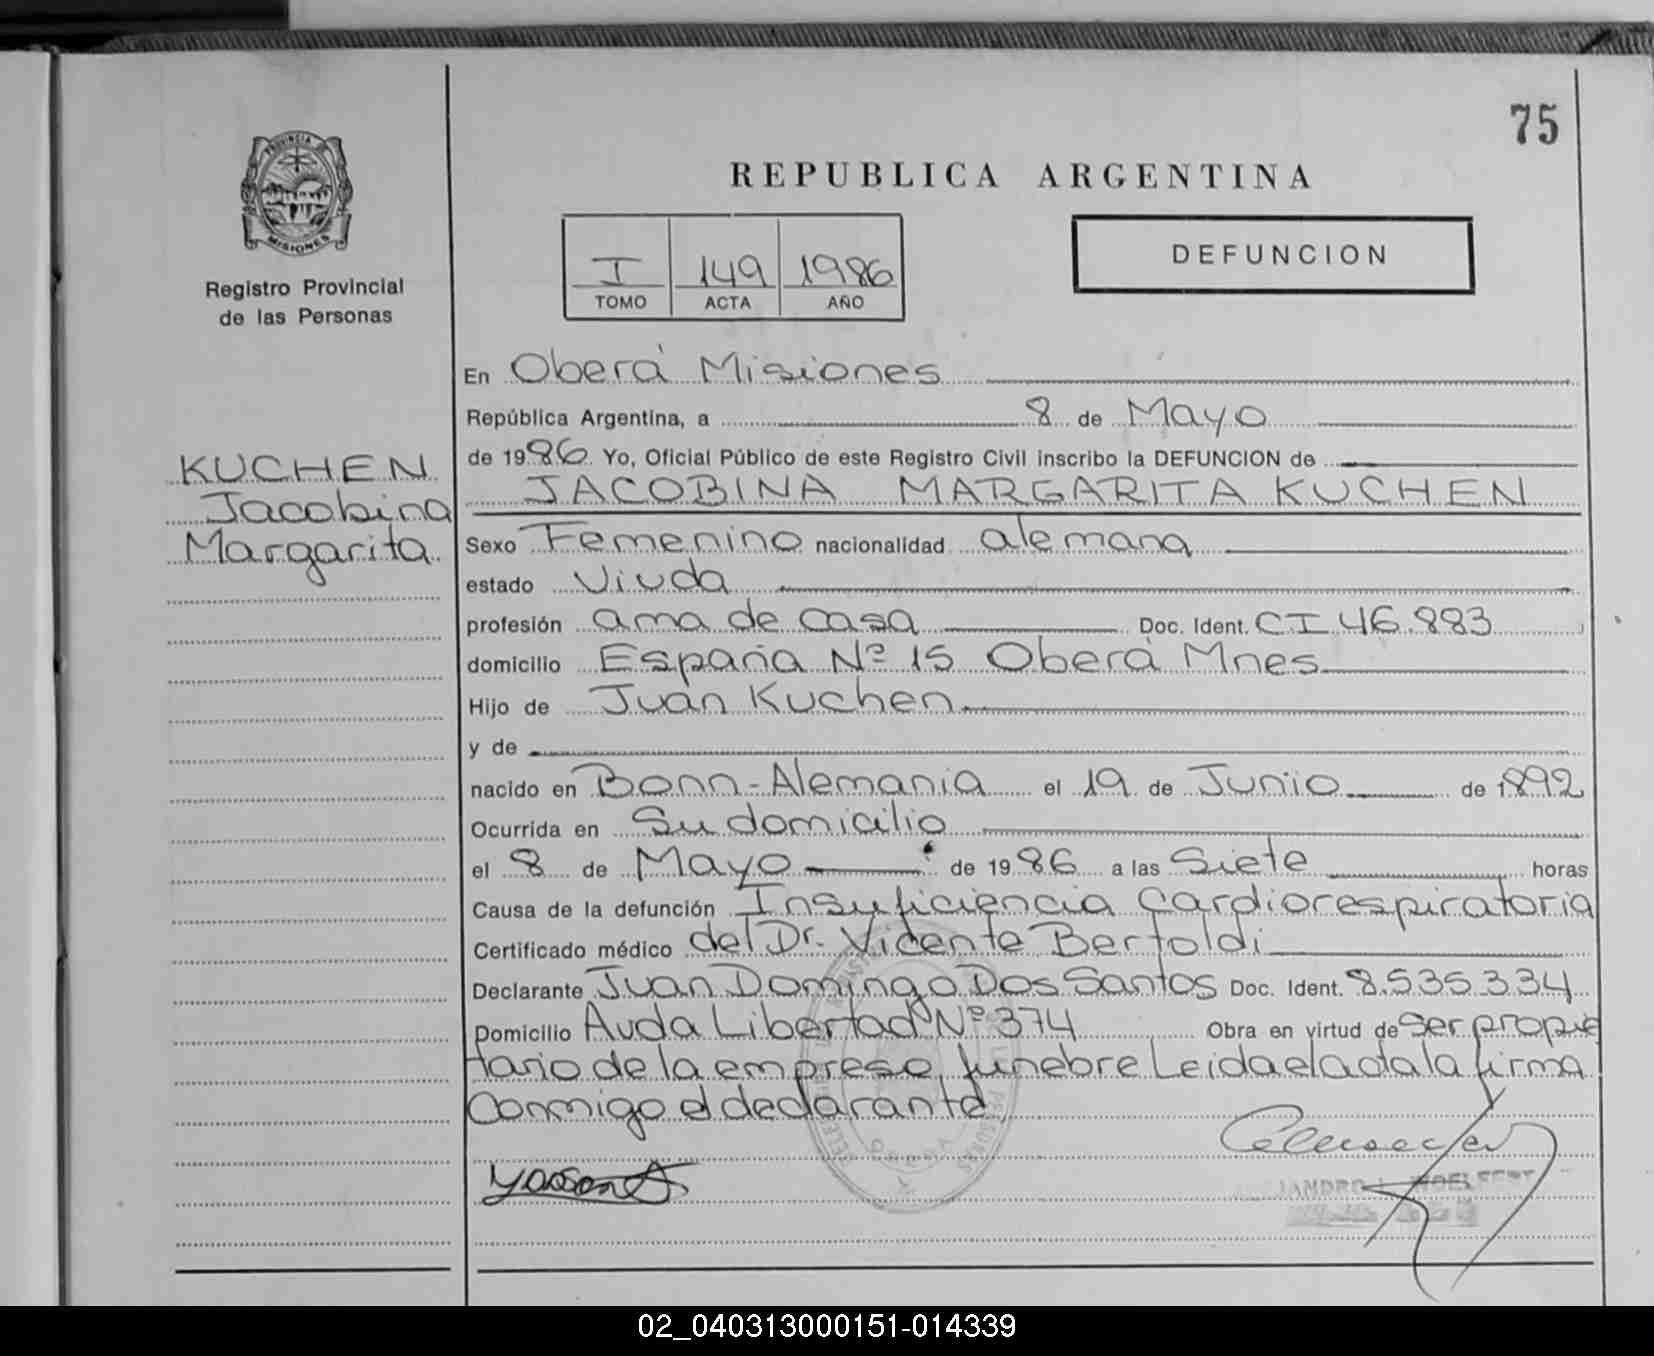 75
REPUBLICA ARGENTINA
PROVINCIA DE
MISIONES
Registro Provincial
de las Personas
I 149 1986
TOMO ACTA AÑO
DEFUNCION
En Oberá Misiones
República Argentina, a 8 de Mayo
de 1986 Yo, Oficial Público de este Registro Civil inscribo la DEFUNCION de
KUCHEN
Jacobina
Margarita
JACOBINA MARGARITA KUCHEN
Sexo Femenino nacionalidad alemana
estado Viuda
profesión ama de casa Doc. Ident. CI 46.883
domicilio España Nº 15 Oberá Mnes
Hijo de Juan Kuchen
y de
nacido en Bonn-Alemania el 19 de Junio de 1892
Ocurrida en Su domicilio
el 8 de Mayo de 1986 a las Siete horas
Causa de la defunción Insuficiencia Cardiorespiratoria
Certificado médico del Dr. Vicente Bertoldi
Declarante Juan Domingo Dos Santos Doc. Ident. 8.535.334
Domicilio Avda Libertad Nº 374 Obra en virtud de Ser propie
tario de la empresa fúnebre Leida el acta la firma
Conmigo el declarante
02_040313000151-014339